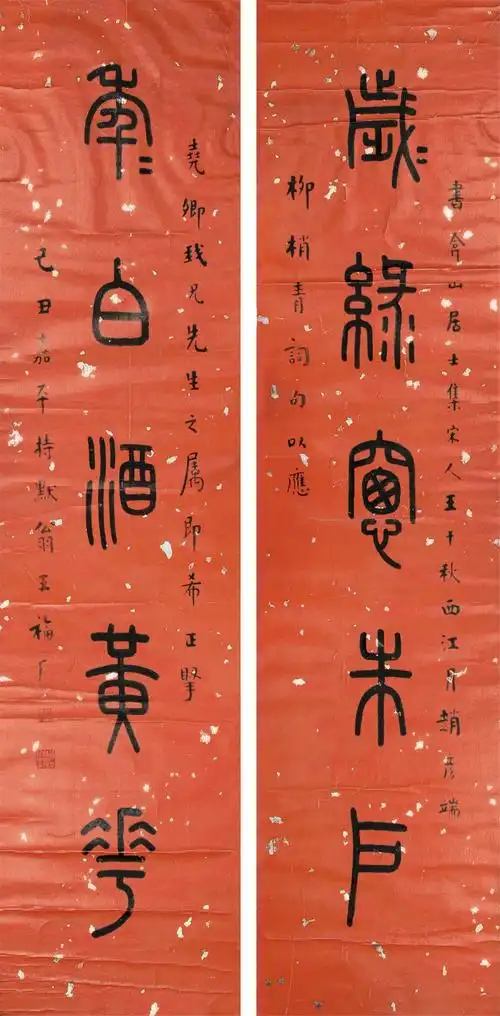 歲〻綠窻朱戶
書山居士集宋人王千秋西江月趙彥端
柳梢青詞句以應
年〻白酒黃花
堯卿我兄先生之属即希正掔
己丑嘉平持默翁王福厂